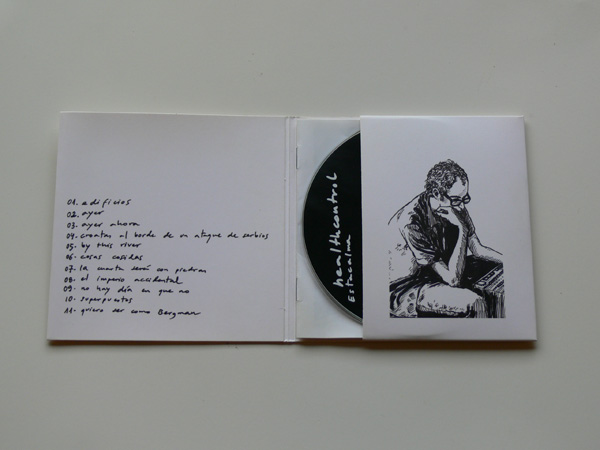 01. edificios
02. ayer
03. ayer ahora
04. croatas al borde de un ataque de serbios
05. by this river
06. casas cosidas
07. la cuarta será con piedras
08. el imperio accidental
09. no hay día en que no
10. superpuestos
11. quiero ser como Bergman
healthcontrol
Estacalma